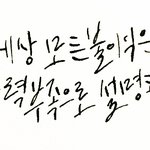 세상 모든 불이익은
력부족으로 설명